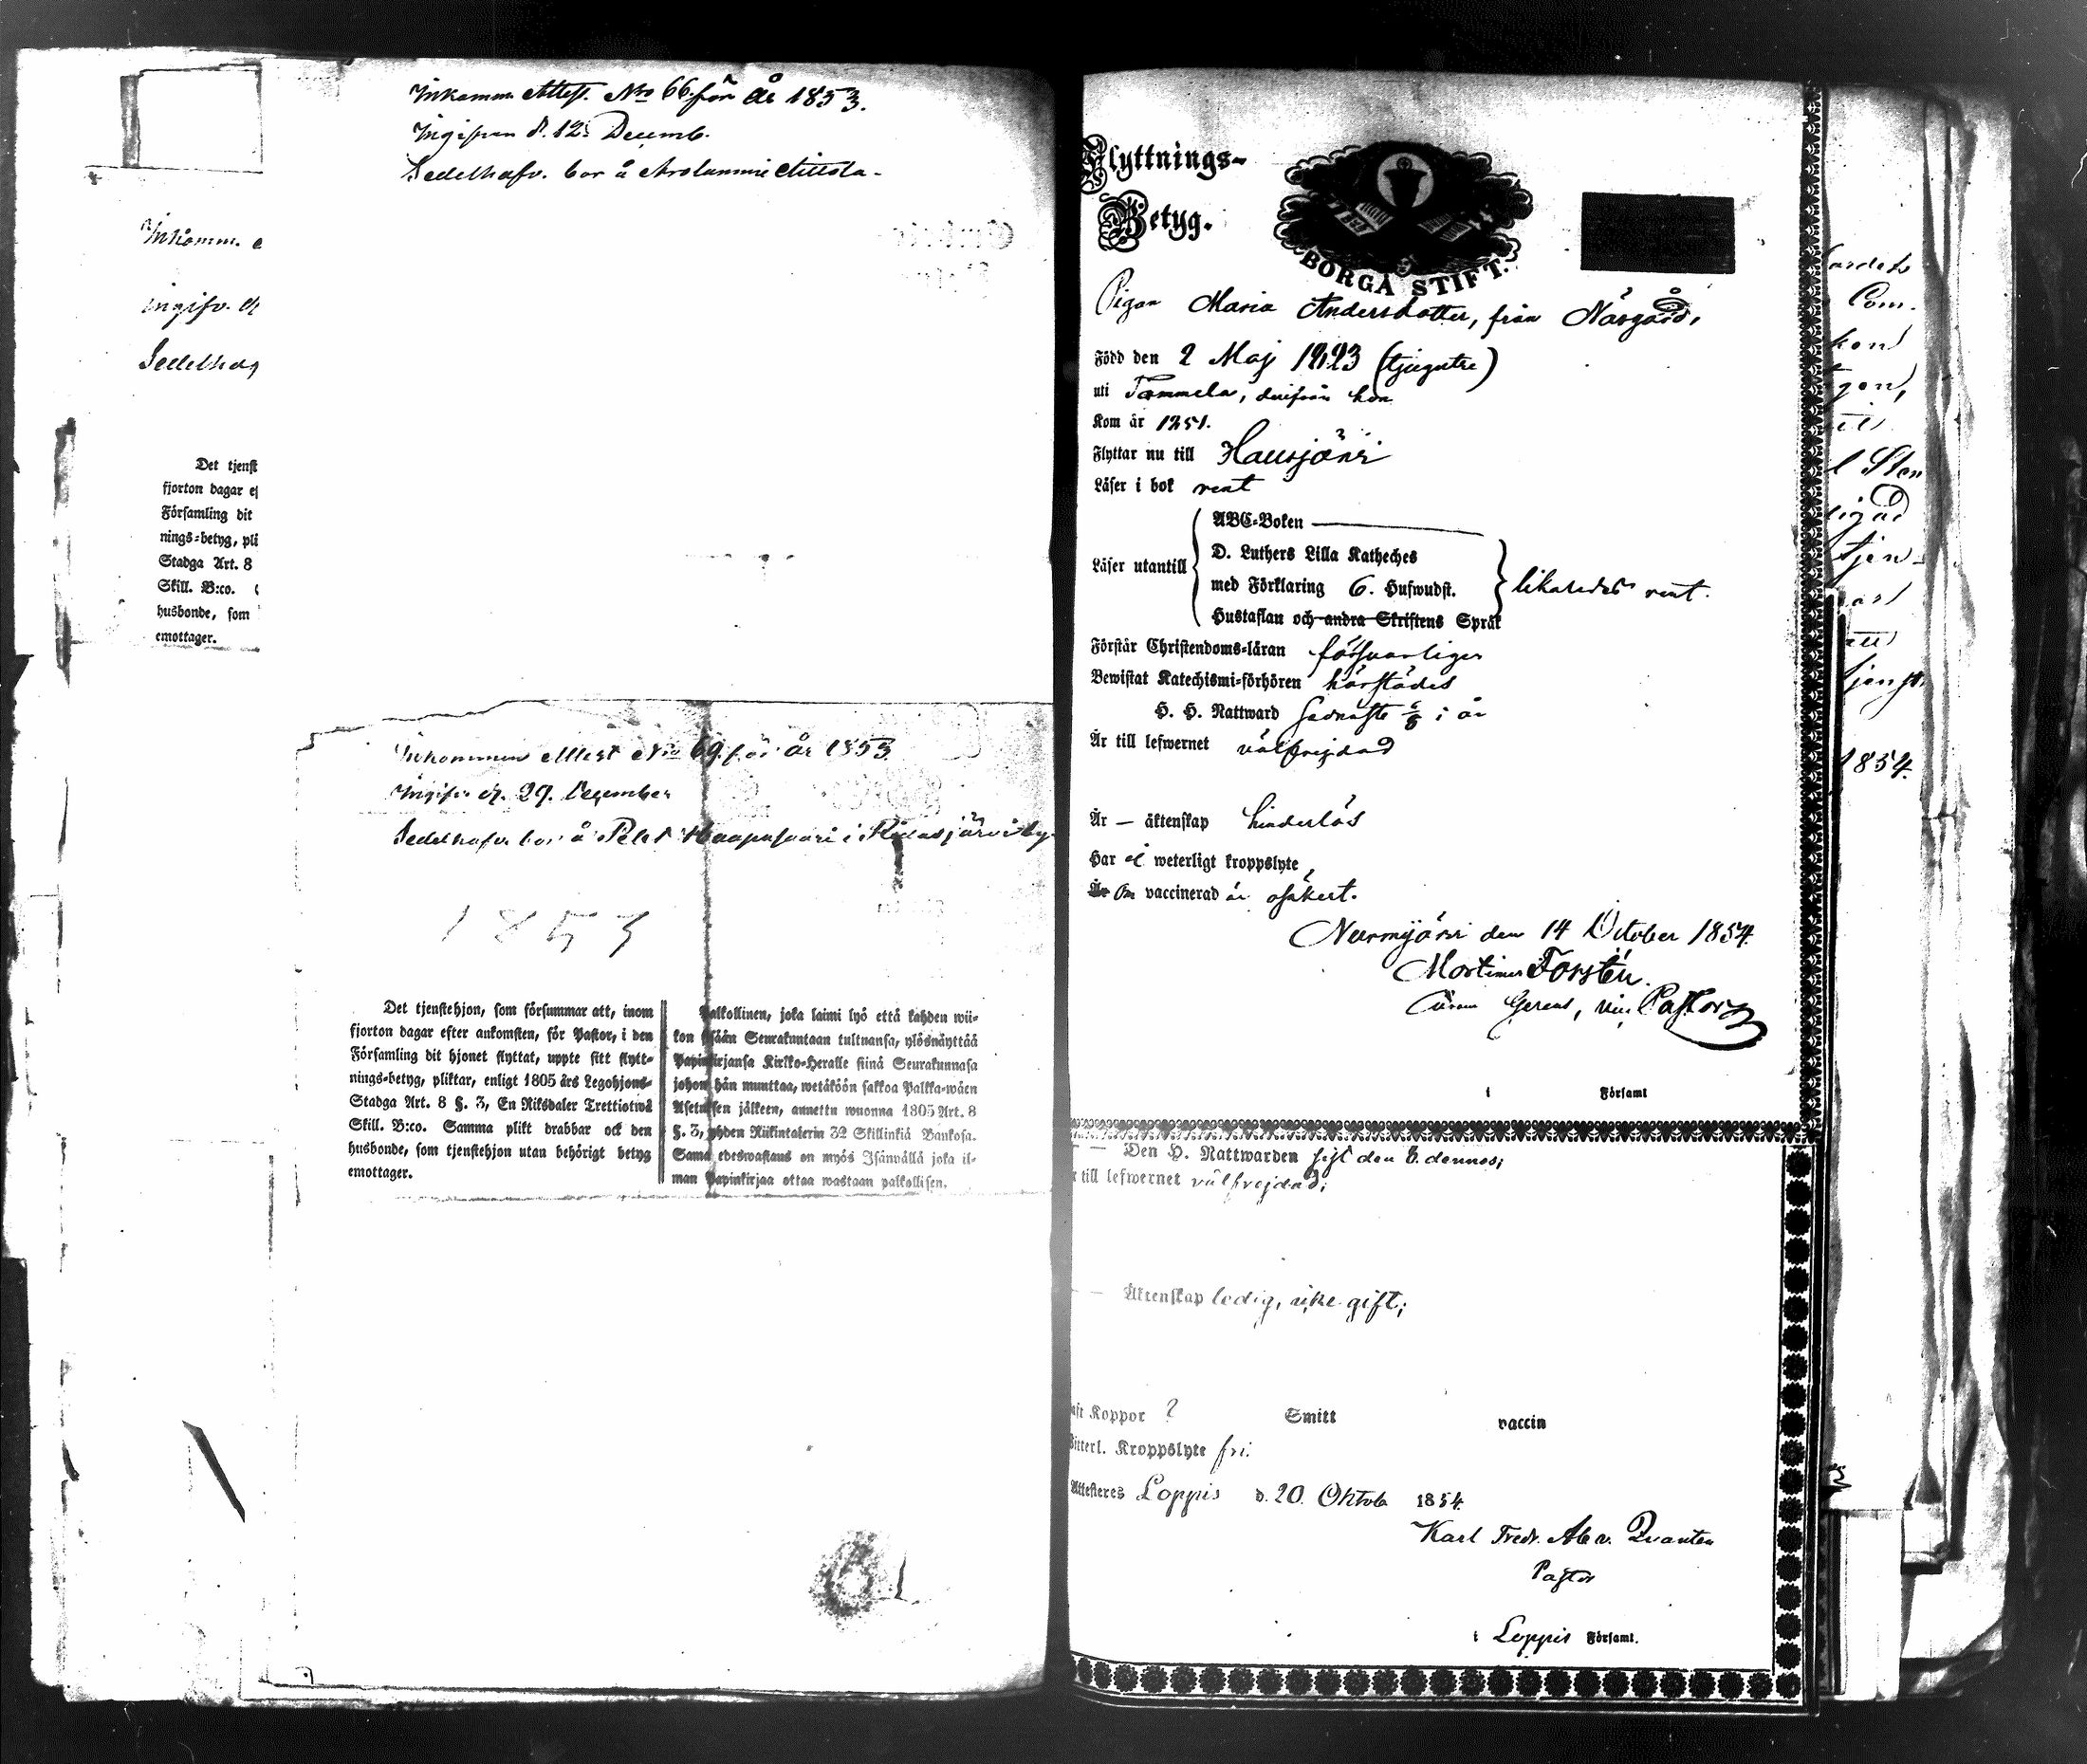 Inkomm. Attest. No 66. för år 1853.
Ingifven d. 12. Decemb.
Sedelhafv. bor å Arolammi Ait­tola.
Inkomm.
ingifv.
Sedelhaf
Det tjenst
fjorton dagar ef
Församling dit
nings-betyg, pli
Stadga Art. 8
Skill. B:co.
husbonde, som
emottager.
Inkommen Attest No 69. för år 1853.
Ingifv. d. 29. December
Sedelhafv. bor å Pelt Haapasaari i Ridasjärvi by.
1853
Det tjenstehjon, som försummar att, inom
fjorton dagar efter ankomsten, för Pastor, i den
Församling dit hjonet flyttat, uppte sitt flytt-
nings-betyg, pliktar, enligt 1805 års Legohjons-
Stadga Art. 8 §. 3, En Riksdaler Trettiotwå
Skill. B:co. Samma plikt drabbar ock den
husbonde, som tjenstehjon utan behörigt betyg
emottager.
Palkollinen, joka laimi lyö että kahden wii-
kon sisään Seurakuntaan tultuansa, ylösnäyttää
Papinkirjansa Kirkko-Heralle siinä Seurakunnasa
johon hän muuttaa, wetäköön sakkoa Palkka-wäen
Asetuksen jälkeen, annettu wuonna 1805 Art. 8
§. 3, yhden Riikintalerin 32 Skillinkiä Bankosa.
Sama edeswastaus on myös Isännällä joka il-
man Papinkirjaa ottaa wastaan palkollisen.
Flyttnings-
Betyg.
BORGÅ STIFT.
Pigan Maria Andersdotter, från Näsgård,
Född den 2 Maj 1823 (tjugutre)
uti Tammela, derifrån hon
Kom år 1851.
Flyttar nu till Hausjärvi
Läser i bok rent
ABC-Boken
D. Luthers Lilla Katheches
Läser utantill
med Förklaring 6. Hufwudst.
likaledes rent.
Hustaflan och andra Skriftens Språk
Förstår Christendoms-läran försvarligen
Bewistat Katechismi-förhören härstädes
H. H. Nattward sednaste i år
Är till lefwernet välfrejdad
Är — äktenskap hinderlös
Har ej weterligt kroppslyte,
Om vaccinerad är osäkert.
Nurmijärvi den 14 October 1854.
Mortimer Forstén.
Curam Gerens, vice Pastor
i Församl
Den H. Nattwarden sist den 8. dennes;
r till lefwernet välfrejdad;
Äktenskap ledig, icke gift;
aft Koppor ? Smitt vaccin
Witterl. Kroppslyte fri.
Attesteres Loppis d. 20. Oktob 1854.
Karl Fredr. Ab v. Quanten
Pastor
i Loppis Församl.
ardets
Com.
hon
l Sten
tjen-
1854.